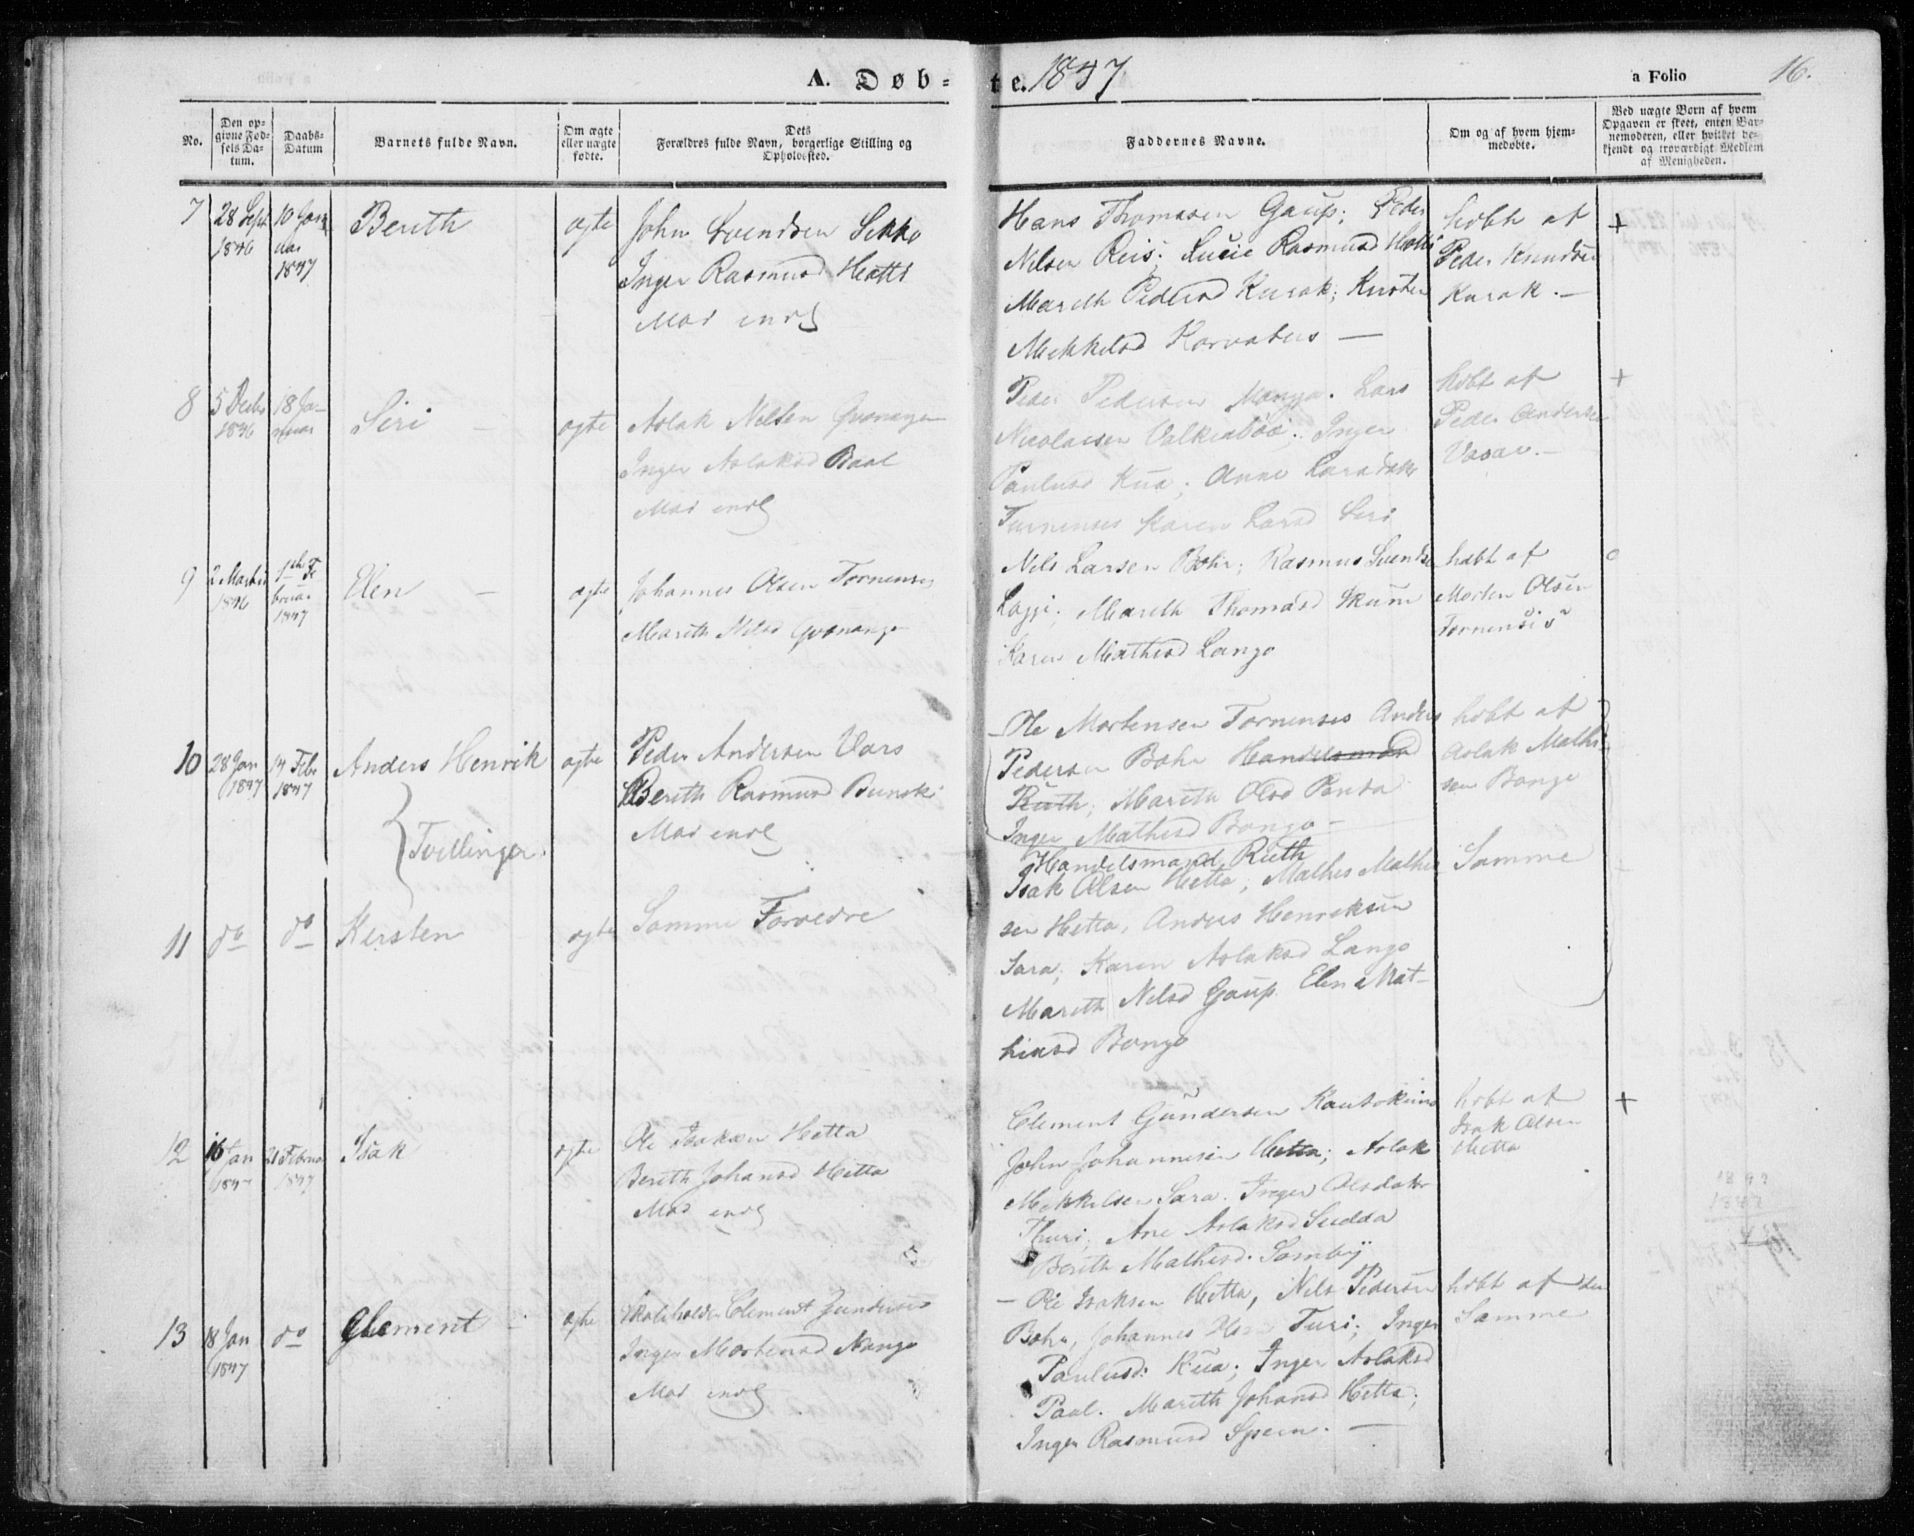 A. Døb-
te. 1847
a Folio
16.
No.
Den op-
givne Fød-
sels Da-
tum.
Daabs-
Datum
Barnets fulde Navn.
Om ægte
eller uægte
fødte.
Dets
Forældres fulde Navn, borgerlige Stilling og
Opholdssted.
Faddernes Navne.
Om og af hvem hjem-
medøbte.
Ved uægte Børn af hvem
Opgaven er skeet, enten Bar-
nemoderen, eller hvilket be-
kjendt og troværdigt Medlem
af Menigheden.
7
28 Sept
1846
10 Jan
uar
1847
Berith
ægte
John Svendsen Sikko
Inger Rasmusd Hætta
Mod
Hans Thomasen Gaup; Peder
Nilsen Reis; Lucie Rasmusd Hætta
Mareth Pedersd Kurak; Kirsten
Mikkelsd Karvabus —
hdbt af
Peder Knudsen
Kurak. —
+
8
5 Decbr
1846
18 Ja-
nuar
Siri —
ægte
Aslak Nilsen Qvænange
Inger Aslaksd Baal
Mod
Peder Pedersen Manja. Lars
Nicolaisen Valkiabøe. Inger
Paulusd Kua; Anne Larsdatr
Tornensis Karen Larsd Siri
hdbt af
Peder Andersen
Vasar. —
+
9
2 Martii
1846
1ste Fe
bruar
1847
Elen —
ægte
Johannes Olsen Tornensis
Marith Nilsd Qvænange
Nils Larsen Bohr; Rasmus Svends
Logje; Mareth Thomasd Skum
Karen Mathisd Lango
hdbt af
Morten Olsen
Tornensis
10
28 Jan
1847
14 Febr
1847
Anders Henrik
ægte
Peder Andersen Vars
Berith Rasmusd Bunski
Mod
Tvillinger.
Ole Mortensen Tornensis Anders
Pedersen Bohr Handelsmand
Ruth; Marith Olsd Panta
Inger Mathisd Bongo —
Handelsmand Ruth
hdbt af
Aslak Mathi-
sen Bongo
11
do
do
Kersten
ægte
Samme Forældre
Isak Olsen Hetta; Mathis Mathi
sen Hetta, Anders Henriksen
Sara; Karen Aslaksd Lango
Mareth Nilsd Gaup. Elen Mat-
hisd Bongo
Samme
12
16 Jan
1847
21 Februa
1847
Isak
ægte
Ole Isaksen Hetta
Berith Johansd Hetta
Mod
Clement Gundersen Kautokeino
John Johannesen Hetta; Aslak
Mikkelsen Sara. Inger Olsdatr
Thuri; Ane Aslaksd Sudda
Berith Mathisd. Somby
hdbt af
Isak Olsen
Hetta
+
13
18 Jan
1847
do
Clement —
ægte
Skoleholder Clement Gundersen
Inger Mortensd Nango
Mod
— Ole Isaksen Hetta, Nils Pedersen
Bohr, Johannes Turi; Inger
Paulusd: Kua; Inger Aslaksd
Paul. Mareth Johansd Hetta;
Inger Rasmusd Spein. —
hdbt af den
Samme